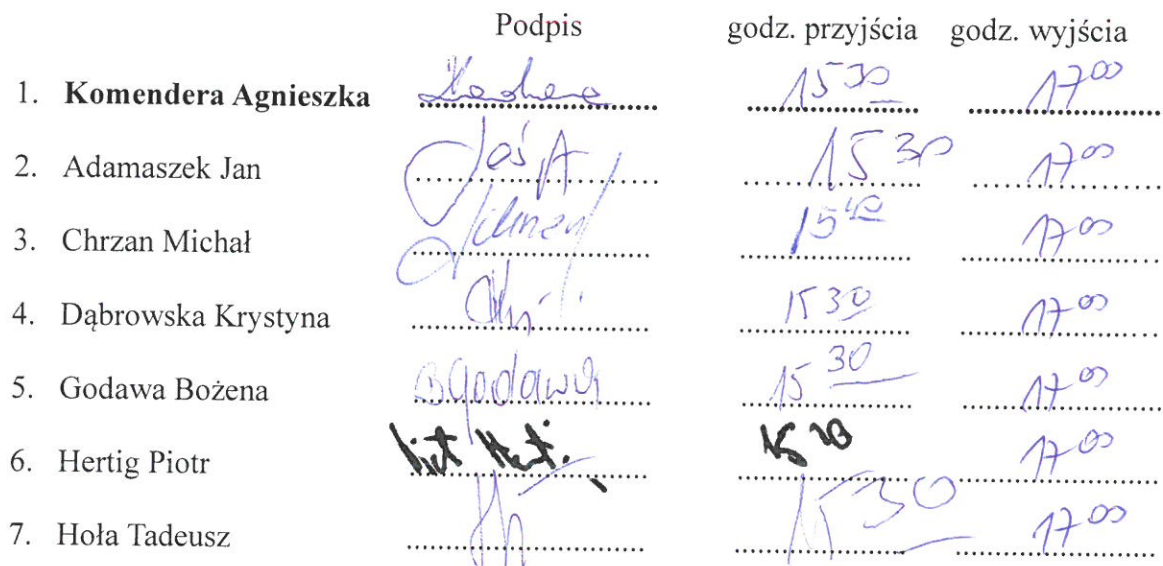 Podpis godz. przyjścia godz. wyjścia
1. Komendera Agnieszka 15 30 17 00
2. Adamaszek Jan 15 30 17 00
3. Chrzan Michał 15 40 17 00
4. Dąbrowska Krystyna 15 30 17 00
5. Godawa Bożena BGodawa 15 30 17 00
6. Hertig Piotr 17 00
7. Hoła Tadeusz 15 30 17 00